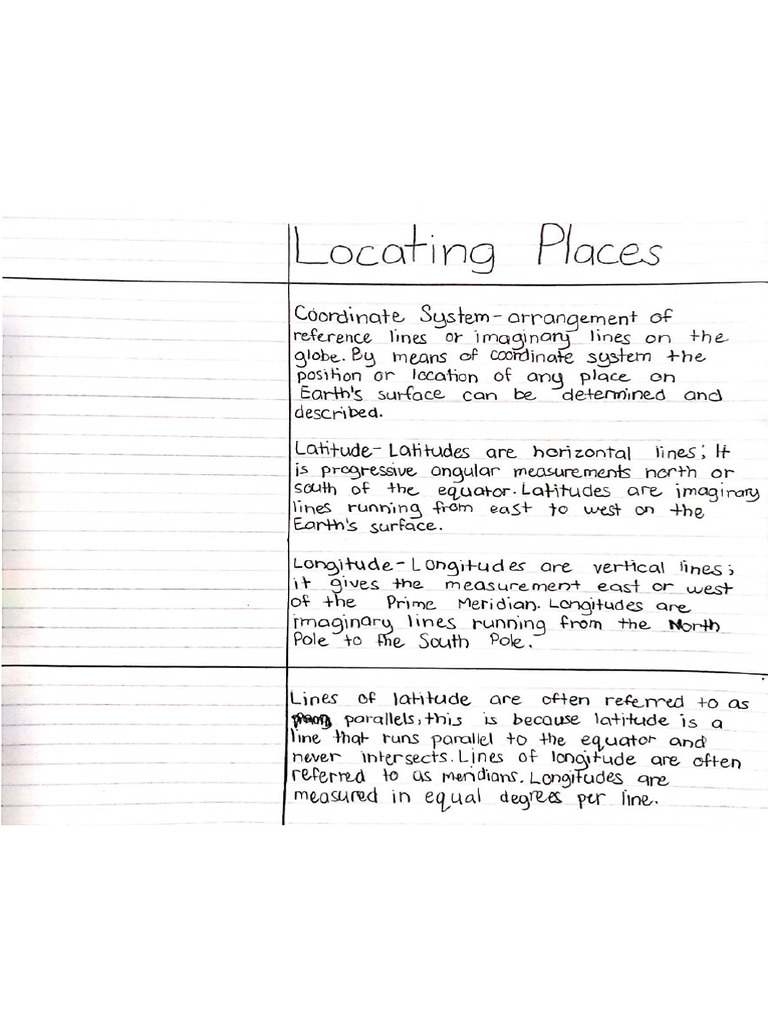 Locating Places
Coordinate System - arrangement of
reference lines or imaginary lines on the
globe. By means of coordinate system the
position or location of any place on
Earth's surface can be determined and
described.
Latitude - Latitudes are horizontal lines; It
is progressive angular measurements north or
south of the equator. Latitudes are imaginary
lines running from east to west on the
Earth's surface.
Longitude - Longitudes are vertical lines;
it gives the measurement east or west
of the Prime Meridian. Longitudes are
imaginary lines running from the North
Pole to the South Pole.
Lines of latitude are often referred to as
parallels, this is because latitude is a
line that runs parallel to the equator and
never intersects. Lines of longitude are often
referred to as meridians. Longitudes are
measured in equal degrees per line.